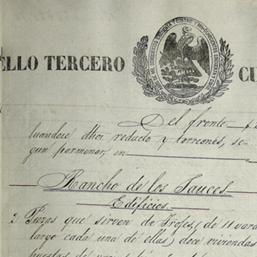 ELLO TERCERO
CU
Del frente
luandose dhos reducto y torreones, se
gun pormenor, en
Rancho de los Sauces
Edificios
2 Piezas que sirven de Trojes, de 11 varas
largo cada una de ellas; doce viviendas